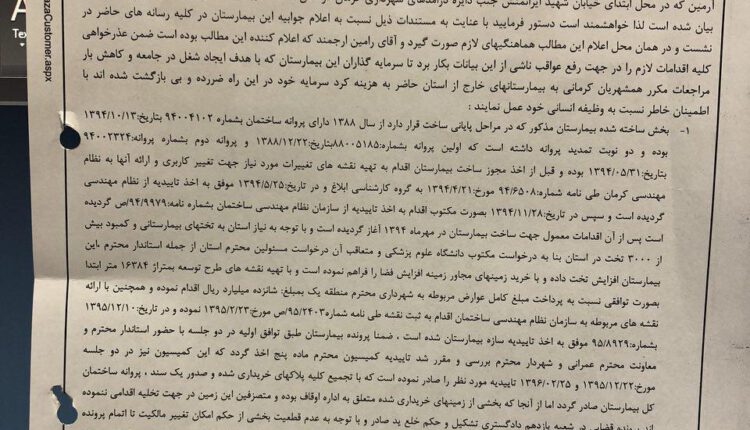 آرمین که در محل ابتدای خیابان شهید ایرانمنش جنب دایره درآمدهای شهرداری
بیان شده است لذا خواهشمند است دستور فرمایید با عنایت به مستندات ذیل نسبت به اعلام جوابیه این بیمارستان در کلیه رسانه های حاضر در
نشست و در همان محل اعلام این مطالب هماهنگیهای لازم صورت گیرد و آقای رامین ارجمند که اعلام کننده این مطالب بوده است ضمن عذرخواهی
کلیه اقدامات لازم را در جهت رفع عواقب ناشی از این بیانات بکار برد تا سرمایه گذاران این بیمارستان که با هدف ایجاد شغل در جامعه و کاهش بار
مراجعات مکرر همشهریان کرمانی به بیمارستانهای خارج از استان حاضر به هزینه کرد سرمایه خود در این راه ضررده و بی بازگشت شده اند با
اطمینان خاطر نسبت به وظیفه انسانی خود عمل نمایند :
۱- بخش ساخته شده بیمارستان مذکور که در مراحل پایانی ساخت قرار دارد از سال ۱۳۸۸ دارای پروانه ساختمان بشماره ۹۴۰۰۴۱۰۲ بتاریخ:۱۳۹۴/۱۰/۱۳
بوده و دو نوبت تمدید پروانه داشته است که اولین پروانه بشماره:۸۸۰۰۵۱۸۵بتاریخ:۱۳۸۸/۱۲/۲۲ و پروانه دوم بشماره پروانه:۹۴۰۰۲۳۲۴
بتاریخ:۱۳۹۴/۰۵/۳۱ بوده و قبل از اخذ مجوز ساخت بیمارستان اقدام به تهیه نقشه های تغییرات مورد نیاز جهت تغییر کاربری و ارائه آنها به نظام
مهندسی کرمان طی نامه شماره:۹۴/۶۵۰۸ مورخ:۱۳۹۴/۴/۲۱ به گروه کارشناسی ابلاغ و در تاریخ:۱۳۹۴/۵/۲۵ موفق به اخذ تاییدیه از نظام مهندسی
گردیده است و سپس در تاریخ:۱۳۹۴/۱۱/۲۸ بصورت مکتوب اقدام به اخذ تاییدیه از سازمان نظام مهندسی ساختمان بشماره نامه:۹۴/۹۹۷۹/ص گردیده
است پس از آن اقدامات معمول جهت ساخت بیمارستان در مهرماه ۱۳۹۴ آغاز گردیده است و با توجه به نیاز استان به تختهای بیمارستانی و کمبود بیش
از ۳۰۰۰ تخت در استان بنا به درخواست مکتوب دانشگاه علوم پزشکی و متعاقب آن درخواست مسئولین محترم استان از جمله استاندار محترم ،این
بیمارستان افزایش تخت داده و با خرید زمینهای مجاور زمینه افزایش فضا را فراهم نموده است و با تهیه نقشه های طرح توسعه بمتراژ ۱۶۳۸۴ متر ابتدا
بصورت توافقی نسبت به پرداخت مبلغ کامل عوارض مربوطه به شهرداری محترم منطقه یک بمبلغ: شانزده میلیارد ریال اقدام نموده و همچنین با ارائه
نقشه های مربوطه به سازمان نظام مهندسی ساختمان اقدام به ثبت نقشه طی نامه شماره:۹۵/۲۴۰۳/ص مورخ:۱۳۹۵/۲/۲۳ نموده و در تاریخ:۱۳۹۵/۱۲/۱۰
بشماره:۹۵/۸۹۲۹ موفق به اخذ تاییدیه سازه بیمارستان شده است ، ضمنا پرونده بیمارستان طبق توافق اولیه در دو جلسه با حضور استاندار محترم و
معاونت محترم عمرانی و شهردار محترم بررسی و مقرر شد تاییدیه کمیسیون محترم ماده پنج اخذ گردد که این کمیسیون نیز در دو جلسه
مورخ:۱۳۹۵/۱۲/۲۲ و ۱۳۹۶/۰۲/۲۵ تاییدیه مورد نظر را صادر نموده است که با تجمیع کلیه پلاکهای خریداری شده و صدور یک سند ، پروانه ساختمان
کل بیمارستان صادر گردد اما از آنجا که بخشی از زمینهای خریداری شده متعلق به اداره اوقاف بوده و متصرفین این زمین در جهت تخلیه اقدامی ننموده
اند پرونده قضایی در شعبه یازدهم دادگستری تشکیل و حکم خلع ید صادر و با توجه به عدم قطعیت بخشی از حکم امکان تغییر مالکیت تا اتمام پرونده
zaCustomer.aspx
A
Tex